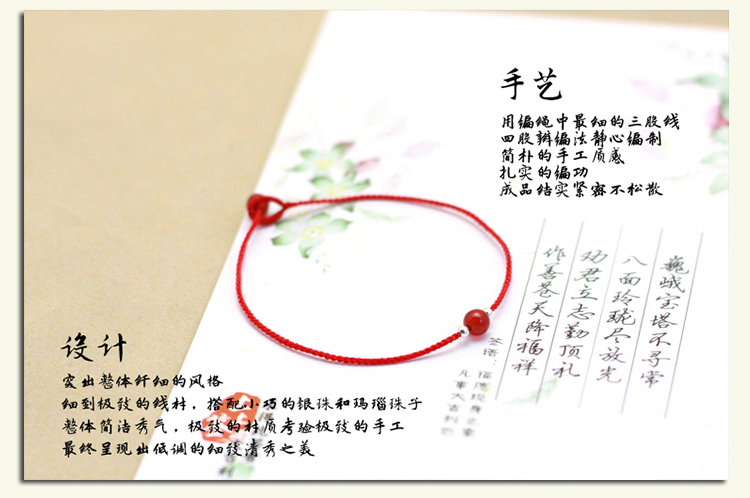 手艺
用编绳中最细的三股线
四股辫编法静心编制
简朴的手工质感
扎实的编功
成品结实紧密不松散
巍峨宝塔不寻常
八面玲珑尽放光
劝君立志勤顶礼
作善苍天降福祥
设计
爱出整体纤细的风格
细到极致的线材，搭配小巧的银珠和玛瑙珠子
整体简洁秀气，极致的材质考验极致的手工
最终呈现出低调的细致清秀之美